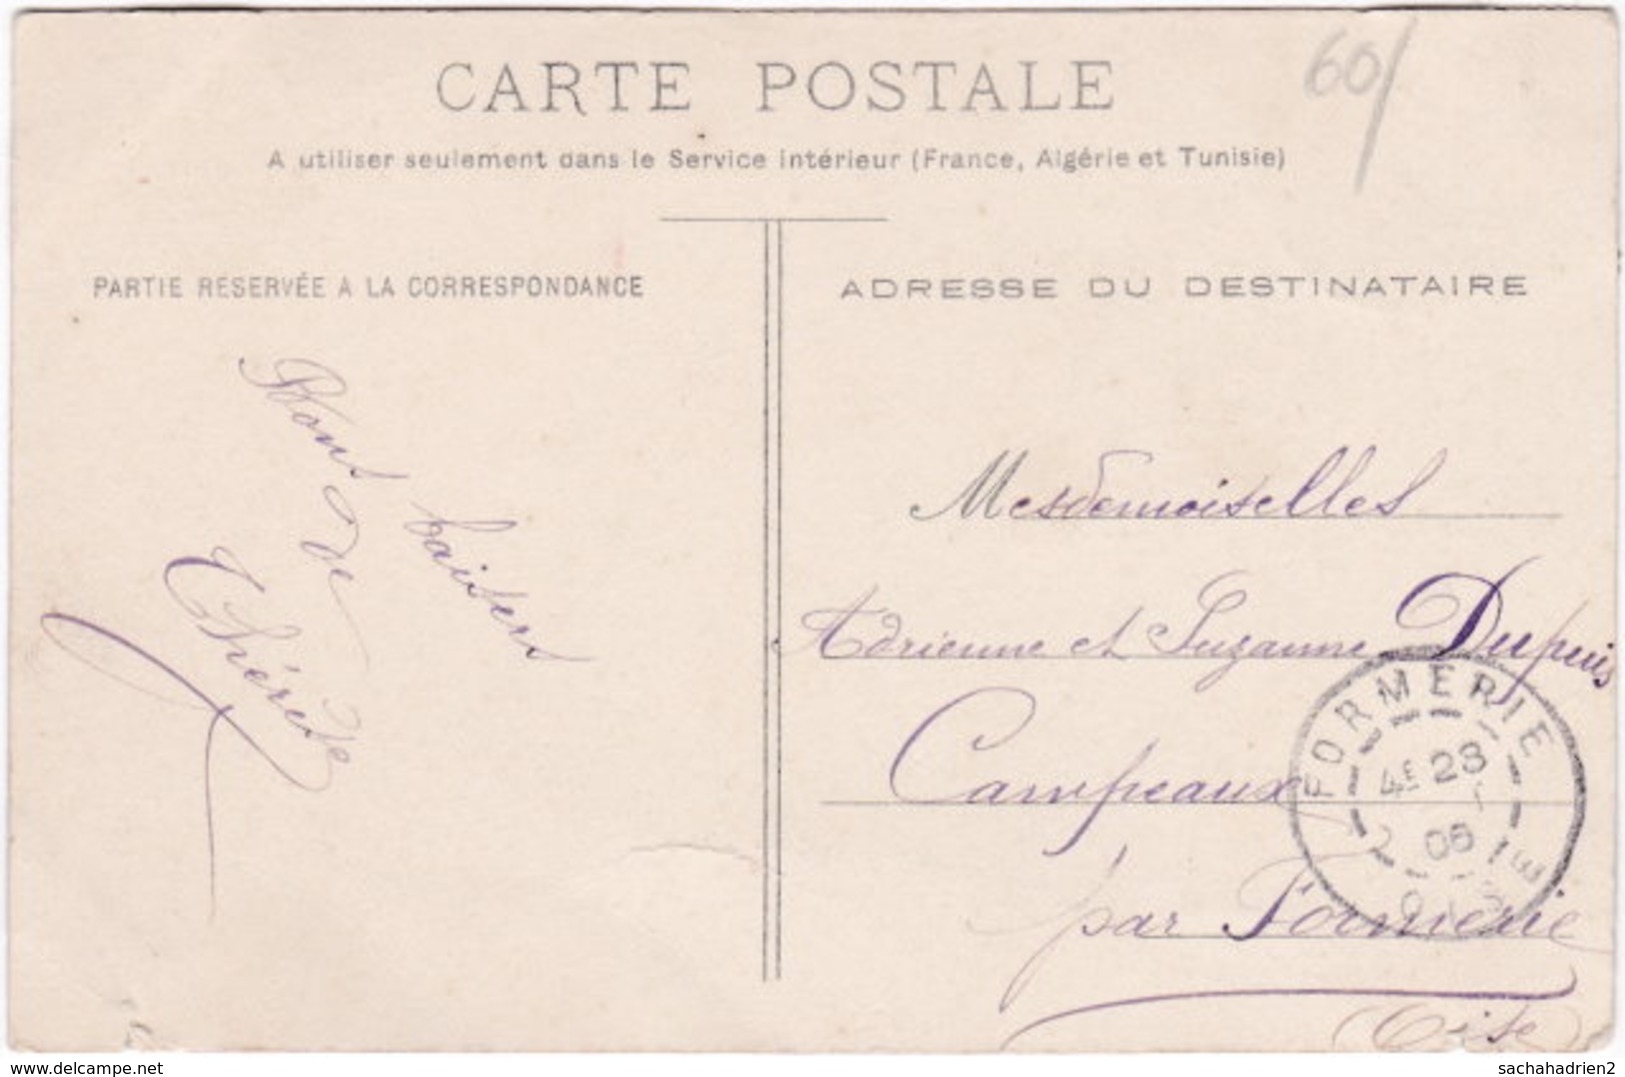 CARTE POSTALE
60/
A utiliser seulement dans le Service intérieur (France, Algérie et Tunisie)
PARTIE RESERVÉE A LA CORRESPONDANCE
ADRESSE DU DESTINATAIRE
Bons baisers
de
Thérèse
Mesdemoiselles
Adrienne et Suzanne Dupuis
Campeaux
par Formerie
(Oise)
FORMERIE
4E 28
06
OISE
delcampe.net
sachahadrien2